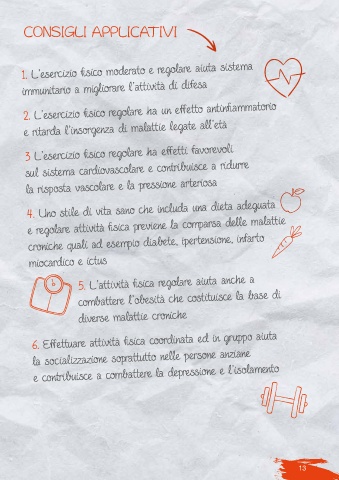 CONSIGLI APPLICATIVI
1. L'esercizio fisico moderato e regolare aiuta sistema
immunitario a migliorare l'attività di difesa
2. L'esercizio fisico regolare ha un effetto antinfiammatorio
e ritarda l'insorgenza di malattie legate all'età
3 L'esercizio fisico regolare ha effetti favorevoli
sul sistema cardiovascolare e contribuisce a ridurre
la risposta vascolare e la pressione arteriosa
4. Uno stile di vita sano che includa una dieta adeguata
e regolare attività fisica previene la comparsa delle malattie
croniche quali ad esempio diabete, ipertensione, infarto
miocardico e ictus
5. L'attività fisica regolare aiuta anche a
combattere l'obesità che costituisce la base di
diverse malattie croniche
6. Effettuare attività fisica coordinata ed in gruppo aiuta
la socializzazione soprattutto nelle persone anziane
e contribuisce a combattere la depressione e l'isolamento
13